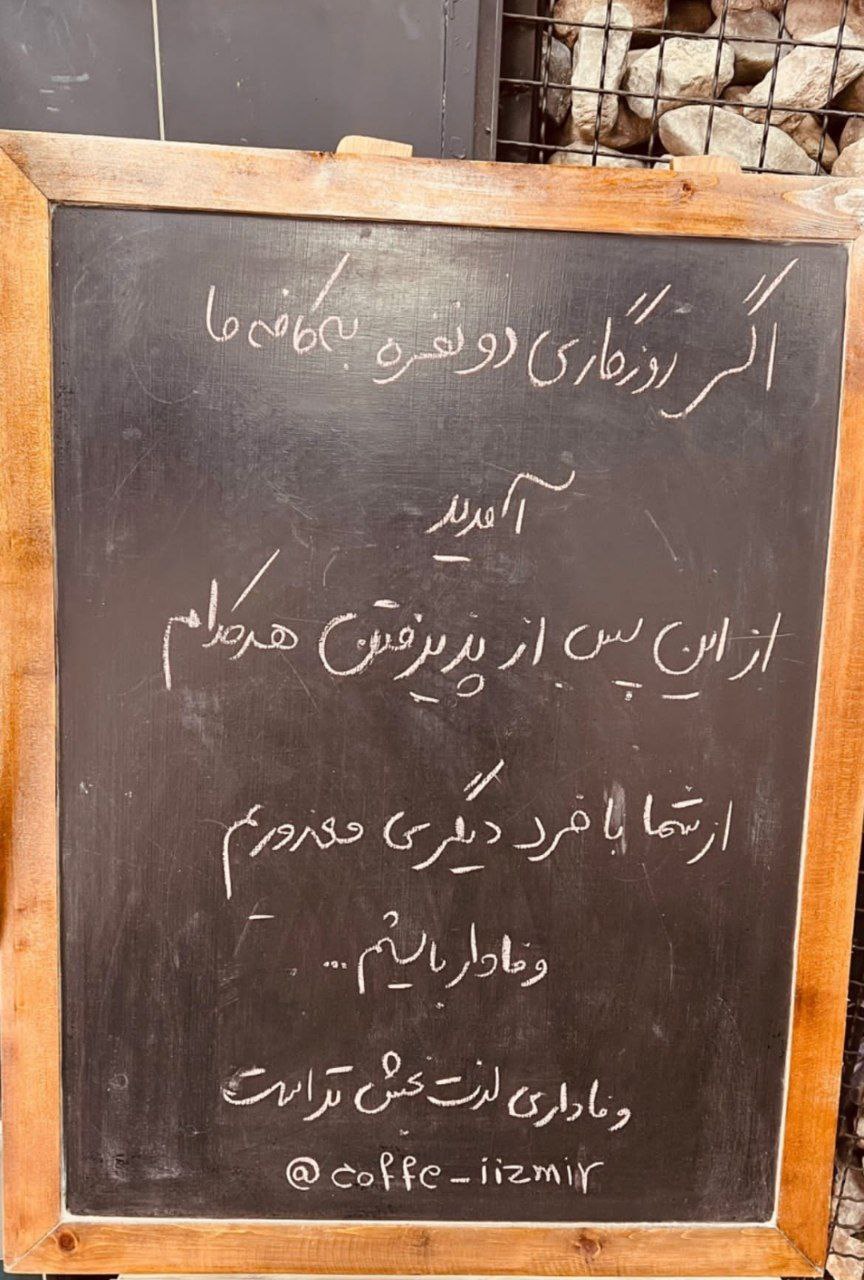 اگر روزگاری دو نفره به کافه ما
آمدید
از این پس از پذیرفتن هرکدام
از شما با فرد دیگری معذوریم
وفادار باشیم ...
وفاداری لذت بخش تر است
@coffe_iizmir